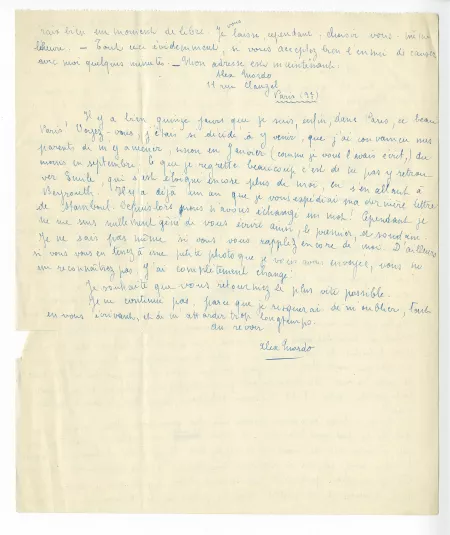 bien un moment de libre. Je vous
laisse cependant choisir vous-même
l'heure. — Tout ceci évidemment, si vous acceptez bien l'ennui de causer
avec moi quelques minutes. — Mon adresse est maintenant:
Alex Mardo
11 rue Clauzel
Paris (9e)
Il y a bien quinze jours que je suis, enfin, dans Paris, ce beau
Paris! Voyez-vous, j'étais si décidé à y venir, que j'ai convaincu mes
parents de m'y amener, sinon en Janvier (comme je vous l'avais écrit), du
moins en septembre. Ce que je regrette beaucoup c'est de ne pas y retrou-
ver Emile, qui s'est éloigné encore plus de moi, en s'en allant à
Beyrouth. Il y a déjà un an que je vous expédiai ma dernière lettre
de Stamboul. Depuis lors nous n'avons échangé un mot! Cependant je
ne me suis nullement gêné de vous écrire ainsi, le premier, et soudain
Je ne sais pas même si vous vous rappelez encore de moi. D'ailleurs
si vous vous en tenez à une petite photo que je vous avais envoyée, vous ne
me reconnaîtrez pas. J'ai complètement changé!
Je souhaite que vous retourniez le plus vite possible.
Je ne continue pas, parce que je risquerai de m'oublier, tout
en vous écrivant, et de m'attarder trop longtemps.
Au revoir
Alex Mardo